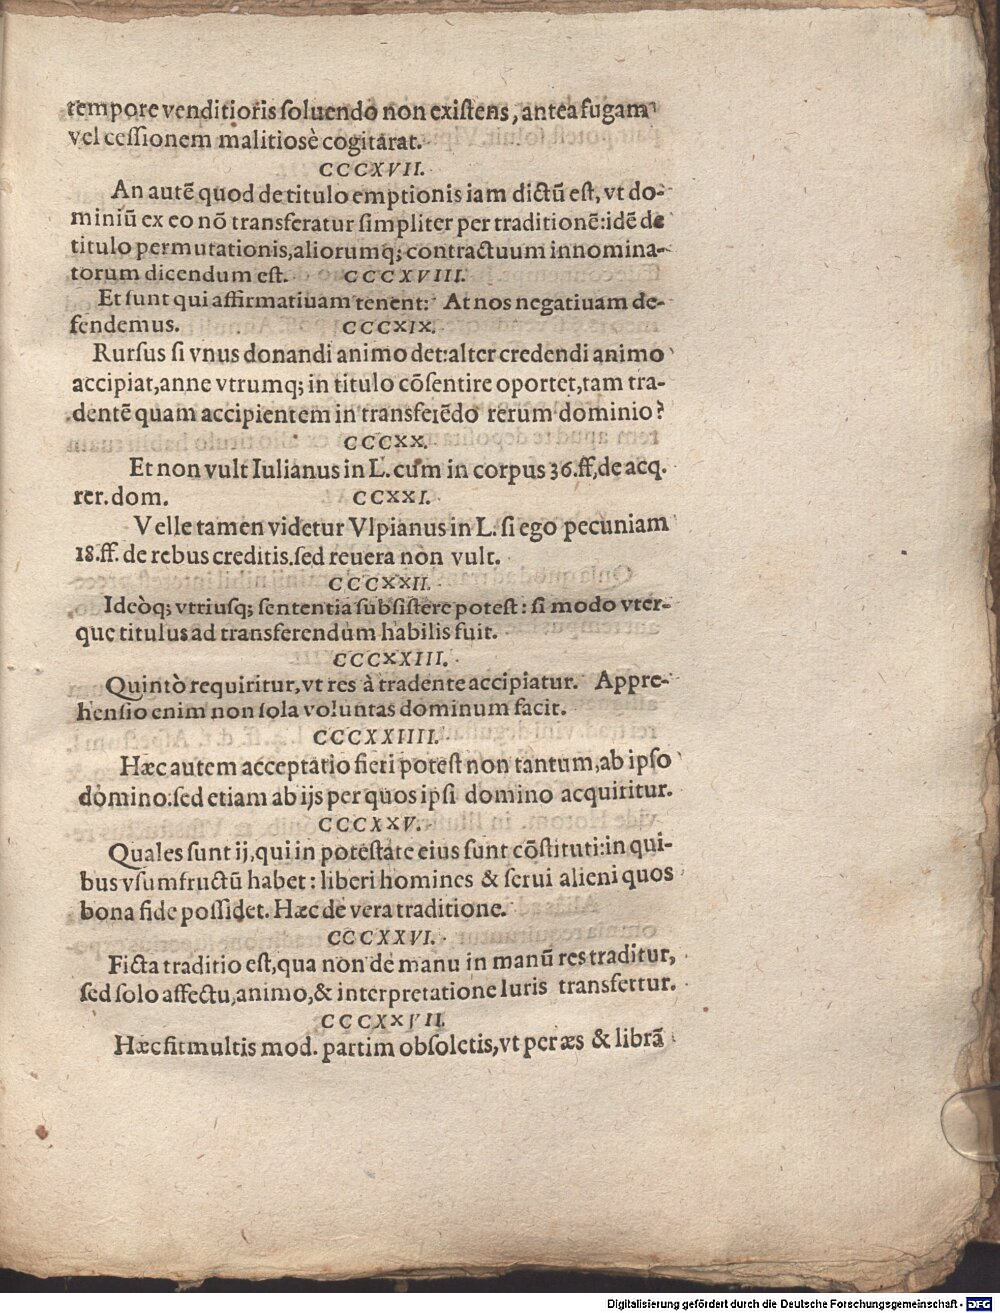 tempore venditioris soluendo non existens, antea fugam
vel cessionem malitiosè cogitarat.
CCCXVII.
An autẽ quod de titulo emptionis iam dictũ est, vt do-
miniũ ex eo nõ transferatur simpliter per traditionẽ: idẽ de
titulo permutationis, aliorumq; contractuum innomina-
torum dicendum est. CCCXVIII.
Et sunt qui affirmatiuam tenent: At nos negatiuam de-
fendemus. CCCXIX.
Rursus si vnus donandi animo det: alter credendi animo
accipiat, anne vtrumq; in titulo cõsentire oportet, tam tra-
dentẽ quam accipientem in transferẽdo rerum dominio?
CCCXX.
Et non vult Iulianus in L. cum in corpus 36. ff, de acq.
rer. dom. CCXXI.
Velle tamen videtur Vlpianus in L. si ego pecuniam
18. ff. de rebus creditis. sed reuera non vult.
CCCXXII.
Ideòq; vtriusq; sententia subsistere potest: si modo vter-
que titulus ad transferendum habilis fuit.
CCCXXIII.
Quintò requiritur, vt res à tradente accipiatur. Appre-
hensio enim non sola voluntas dominum facit.
CCCXXIIII.
Hæc autem acceptatio fieri potest non tantum, ab ipso
domino: sed etiam ab ijs per quos ipsi domino acquiritur.
CCCXXV.
Quales sunt ij, qui in potestate eius sunt cõstituti: in qui-
bus vsumfructũ habet: liberi homines & serui alieni quos
bona fide possidet. Hæc de vera traditione.
CCCXXVI.
Ficta traditio est, qua non de manu in manũ res traditur,
sed solo affectu, animo, & interpretatione Iuris transfertur.
CCCXXVII.
Hæc fit multis mod. partim obsoletis, vt per æs & librã
Digitalisierung gefördert durch die Deutsche Forschungsgemeinschaft - DFG